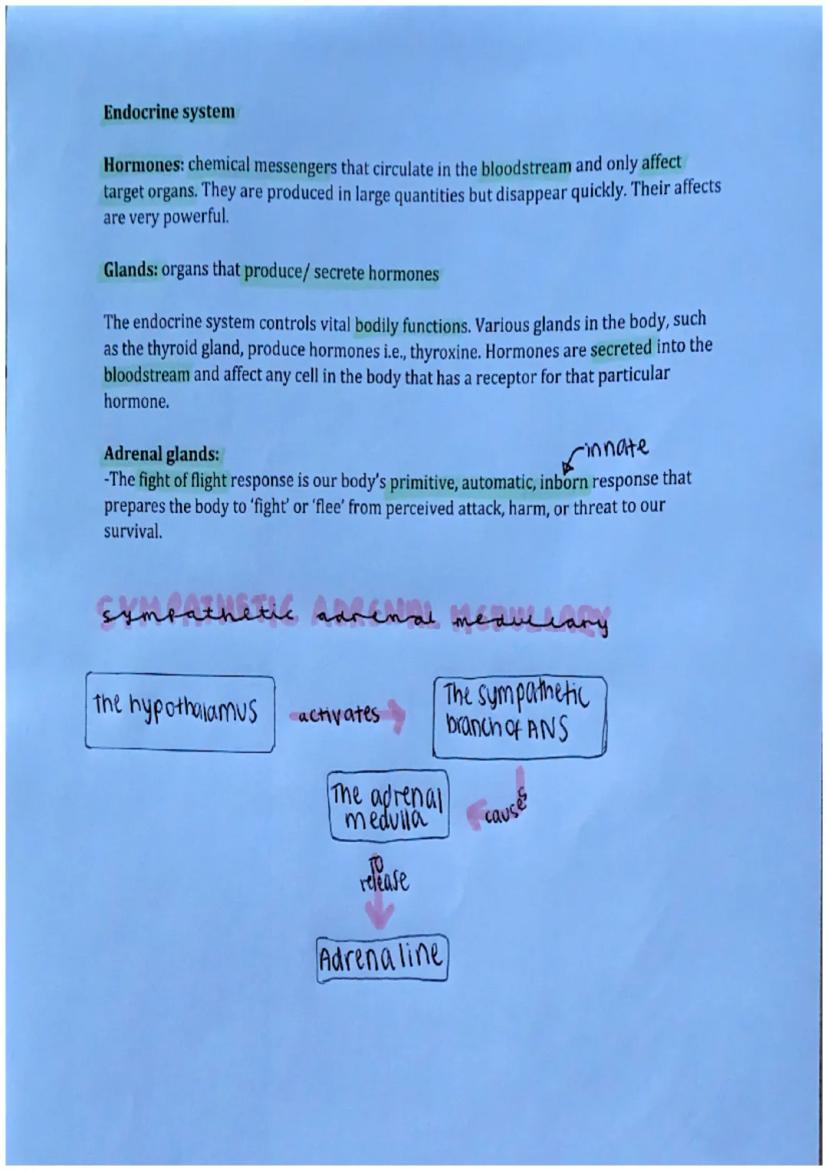 Endocrine system
Hormones: chemical messengers that circulate in the bloodstream and only affect
target organs. They are produced in large quantities but disappear quickly. Their affects
are very powerful.
Glands: organs that produce/ secrete hormones
The endocrine system controls vital bodily functions. Various glands in the body, such
as the thyroid gland, produce hormones i.e., thyroxine. Hormones are secreted into the
bloodstream and affect any cell in the body that has a receptor for that particular
hormone.
innate
Adrenal glands:
-The fight of flight response is our body's primitive, automatic, inborn response that
prepares the body to 'fight' or 'flee' from perceived attack, harm, or threat to our
survival.
SYMPATHETIC ADRENAL MEDULLARY
sympathetic adrenal medullary
The hypothalamus
activates
The sympathetic
branch of ANS
causes
The adrenal
medulla
TO
release
Adrenaline